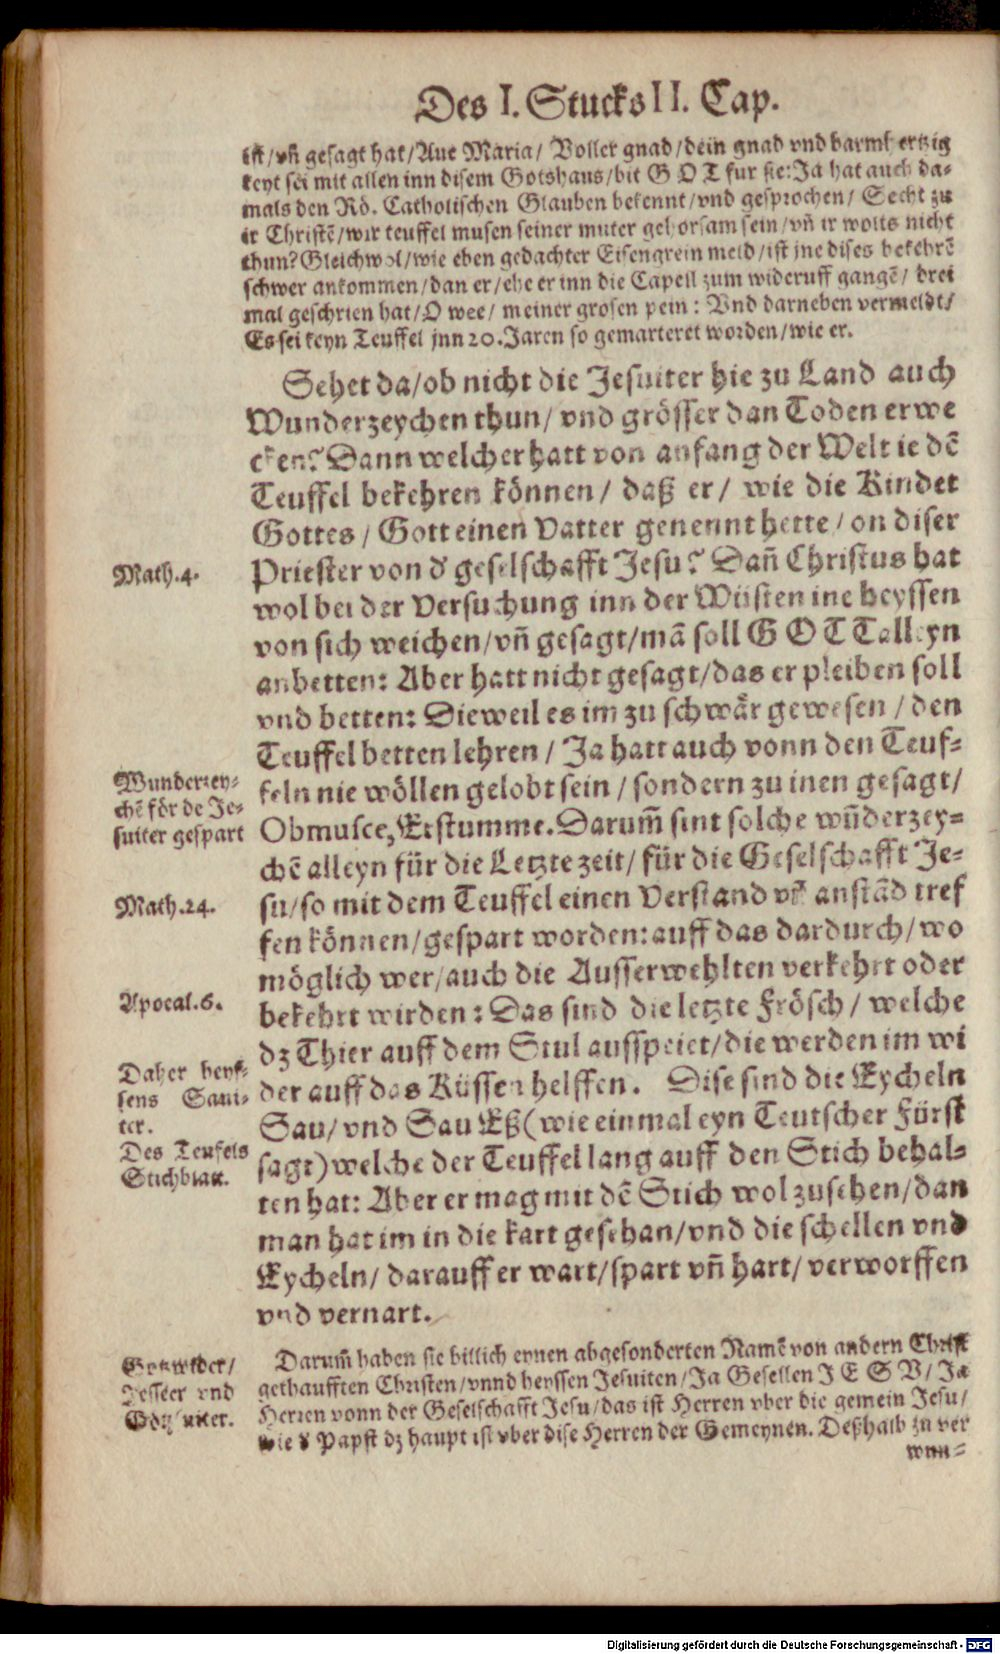 Des I. Stucks II. Cap.
ist/vñ gesagt hat/Aue Maria/ Voller gnad/dein gnad vnd barmhertzig
keyt sei mit allen inn disem Gotshaus/bit G O T fur sie: Ja hat auch da-
mals den Rö. Catholischen Glauben bekennt/vnd gesprochen/ Secht zu
ir Christē/wir teuffel musen seiner muter gehorsam sein/vñ ir wolts nicht
thun? Gleichwol/wie eben gedachter Eisengrein meld/ist jne dises bekehrē
schwer ankommen/dan er/ehe er inn die Capell zum wideruff gangē/ drei
mal geschrien hat/O wee/ meiner grosen pein: Vnd darneben vermeldt/
Es sei keyn Teuffel jnn 20. Jaren so gemarteret worden/wie er.
Sehet da/ob nicht die Jesuiter hie zu Land auch
Wunderzeychen thun/ vnd grösser dan Toden erwe
cken? Dann welcher hatt von anfang der Welt ie dē
Teuffel bekehren können/ daß er/ wie die Kindet
Gottes/ Gott einen Vatter genennt hette/ on diser
Math.4.
Priester von d' geselschafft Jesu? Dañ Christus hat
wol bei der Versuchung inn der Wüsten ine heyssen
von sich weichen/vñ gesagt/mā soll G O T T alleyn
anbetten: Aber hatt nicht gesagt/das er pleiben soll
vnd betten: Dieweil es im zu schwär gewesen/ den
Teuffel betten lehren/ Ja hatt auch vonn den Teuf-
Wunderzey-
chē för de Je-
suiter gespart
feln nie wöllen gelobt sein/ sondern zu inen gesagt/
Obmusce, Erstumme. Darum̃ sint solche wūderzey-
chē alleyn für die Letzte zeit/ für die Geselschafft Je-
Math.24.
su/so mit dem Teuffel einen Verstand vñ anstād tref
fen können/gespart worden: auff das dardurch/wo
möglich wer/auch die Ausserwehlten verkehrt oder
Apocal.6.
bekehrt wirden: Das sind die letzte Frösch/ welche
dz Thier auff dem Stul ausspeiet/die werden im wi
Daher heyß-
sens Saui-
ter.
der auff das Küssen helffen. Dise sind die Eycheln
Sau/ vnd Sau Eß (wie einmal eyn Teutscher Fürst
Des Teufels
Stichblatt.
sagt) welche der Teuffel lang auff den Stich behal-
ten hat: Aber er mag mit dē Stich wol zusehen/dan
man hat im in die kart gesehan/vnd die schellen vnd
Eycheln/ darauff er wart/spart vñ hart/ verworffen
vnd vernart.
Darum̃ haben sie billich eynen abgesonderten Namē von andern Christ
Jesseer vnd
gethaufften Christen/vnnd heyssen Jesuiten/Ja Gesellen J E S V/ Ja
Herren vonn der Geselschafft Jesu/das ist Herren vber die gemein Jesu/
wie d' Papst dz haupt ist vber dise Herren der Gemeynen. Deßhalb zu ver
wun-
Digitalisierung gefördert durch die Deutsche Forschungsgemeinschaft - DFG